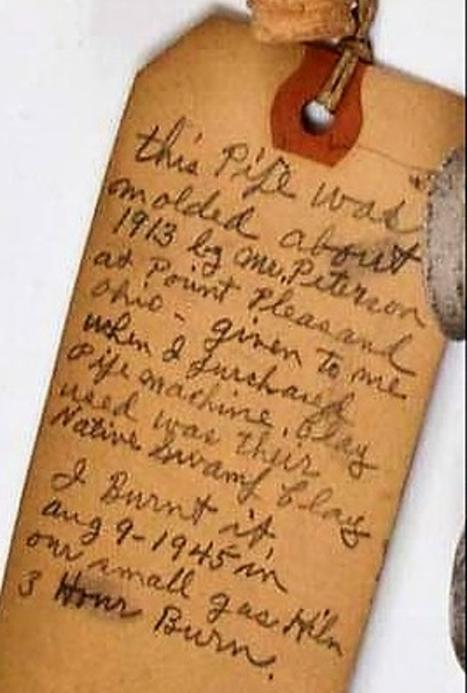 this Pipe was
molded about
1913 by Mr. Peterson
at Point Pleasand
Ohio - given to me
when I purchased
Pipe machine. Clay
used was their
Native Swamp Clay
I Burnt it
aug 9-1945 in
our small gas Kiln
3 Hour Burn.